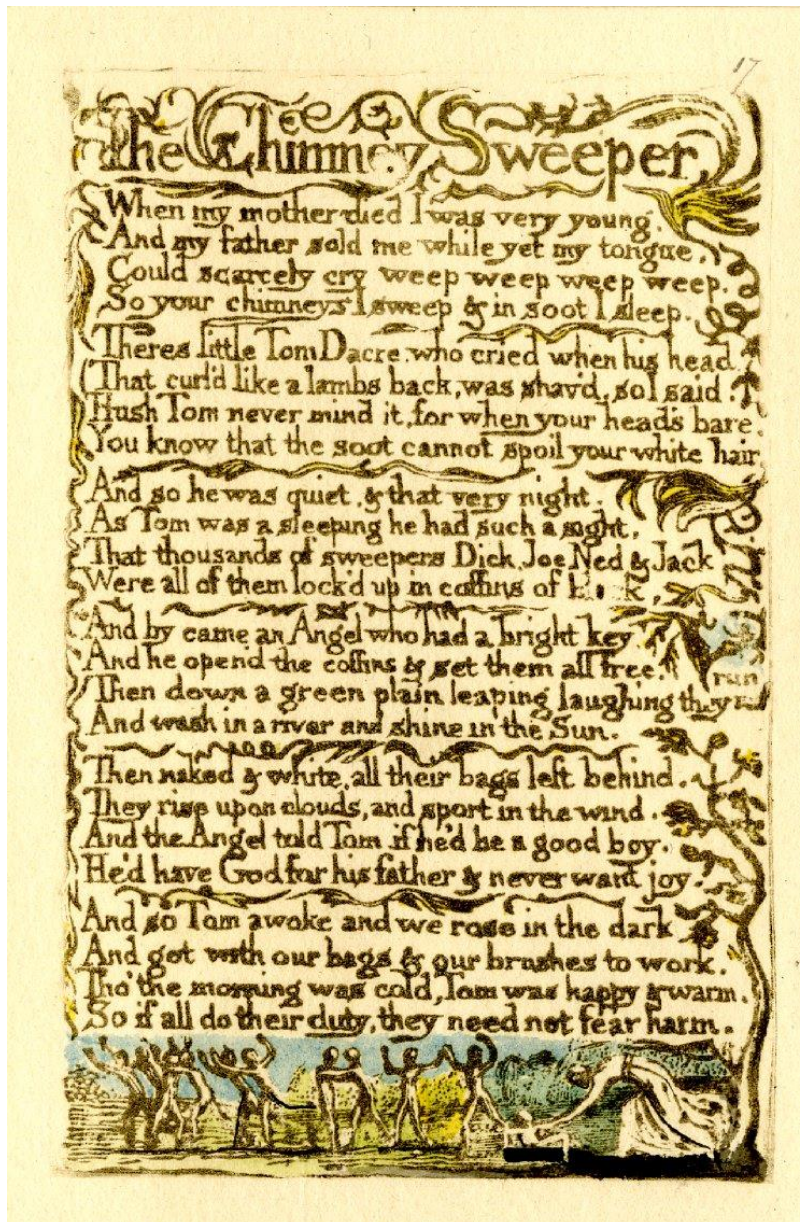 17
The Chimney Sweeper
When my mother died I was very young.
And my father sold me while yet my tongue,
Could scarcely cry weep weep weep weep.
So your chimneys I sweep & in soot I sleep.
Theres little Tom Dacre, who cried when his head
That curl'd like a lambs back, was shav'd, so I said.
Hush Tom never mind it, for when your head's bare,
You know that the soot cannot spoil your white hair
And so he was quiet, & that very night.
As Tom was a sleeping he had such a sight,
That thousands of sweepers Dick, Joe Ned & Jack
Were all of them lock'd up in coffins of
And by came an Angel who had a bright key
And he open'd the coffins & set them all free.
run
Then down a green plain leaping laughing they
And wash in a river and shine in the Sun.
Then naked & white, all their bags left behind.
They rise upon clouds, and sport in the wind.
And the Angel told Tom if he'd be a good boy,
He'd have God for his father & never want joy.
And so Tom awoke and we rose in the dark
And got with our bags & our brushes to work.
Tho' the morning was cold, Tom was happy & warm.
So if all do their duty, they need not fear harm.